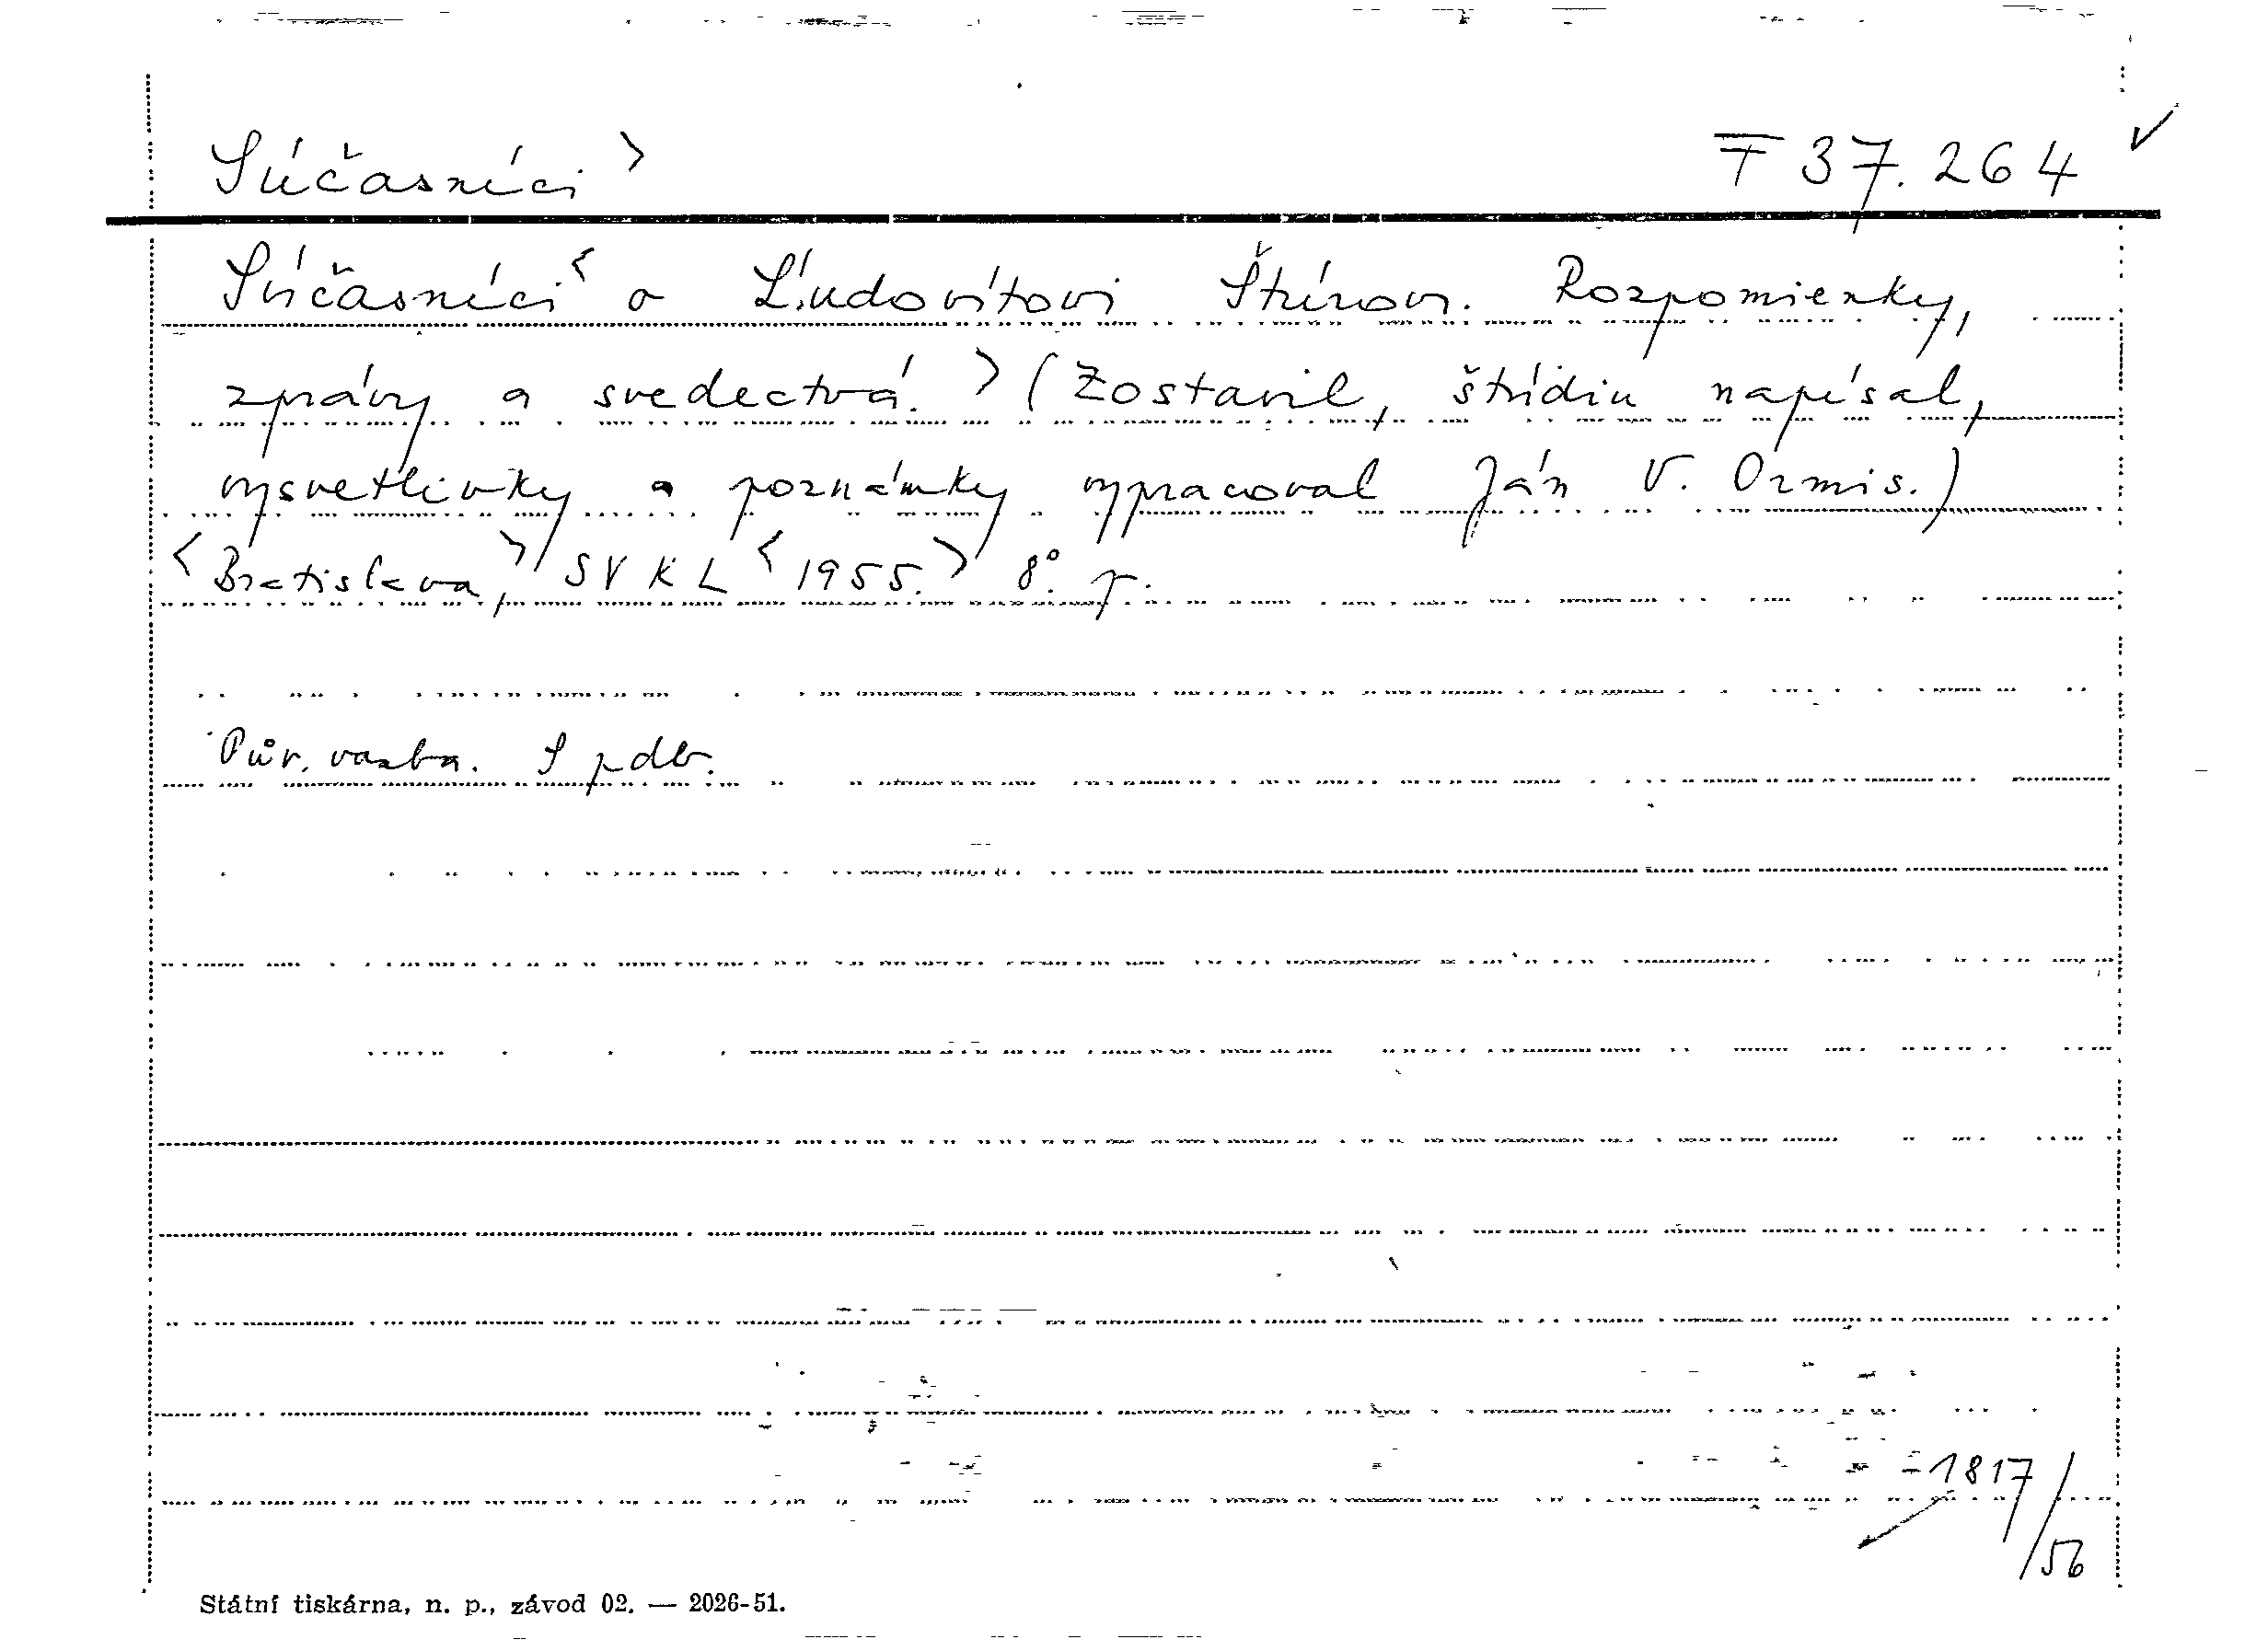 Súčasníci > F 37.264 ✓
Súčasníci < o Ľudovítovi Štúrovi. Rozpomienky,
zprávy a svedectvá. > (Zostavil, štúdiu napísal,
vysvetlivky a poznámky vypracoval Ján V. Ormis.)
<Bratislava,> SVKL <1955.> 8°. p.
Pův. vazba. S pdb.
1817/56
Státní tiskárna, n. p., závod 02. — 2026-51.